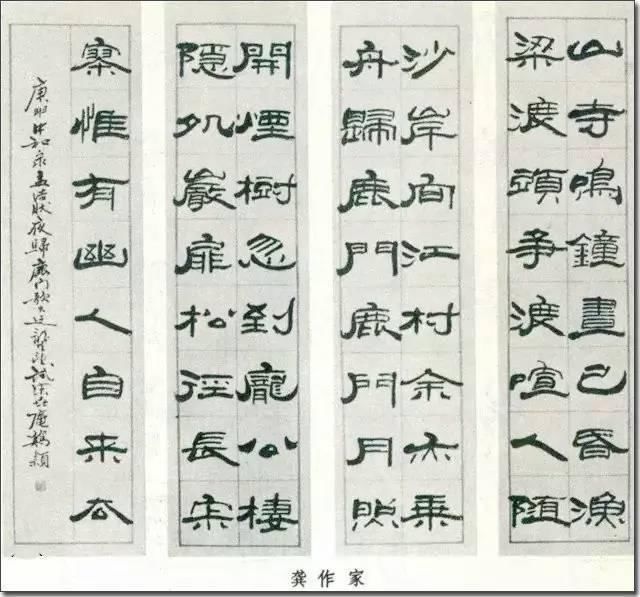 山寺鳴鐘晝已昏漁
梁渡頭爭渡喧人隨
沙岸向江村余亦乘
舟歸鹿門鹿門月照
開煙樹忽到龐公棲
隱処巖扉松徑長宋
寮惟有幽人自来去
孟浩然夜歸鹿門歌
龚作家